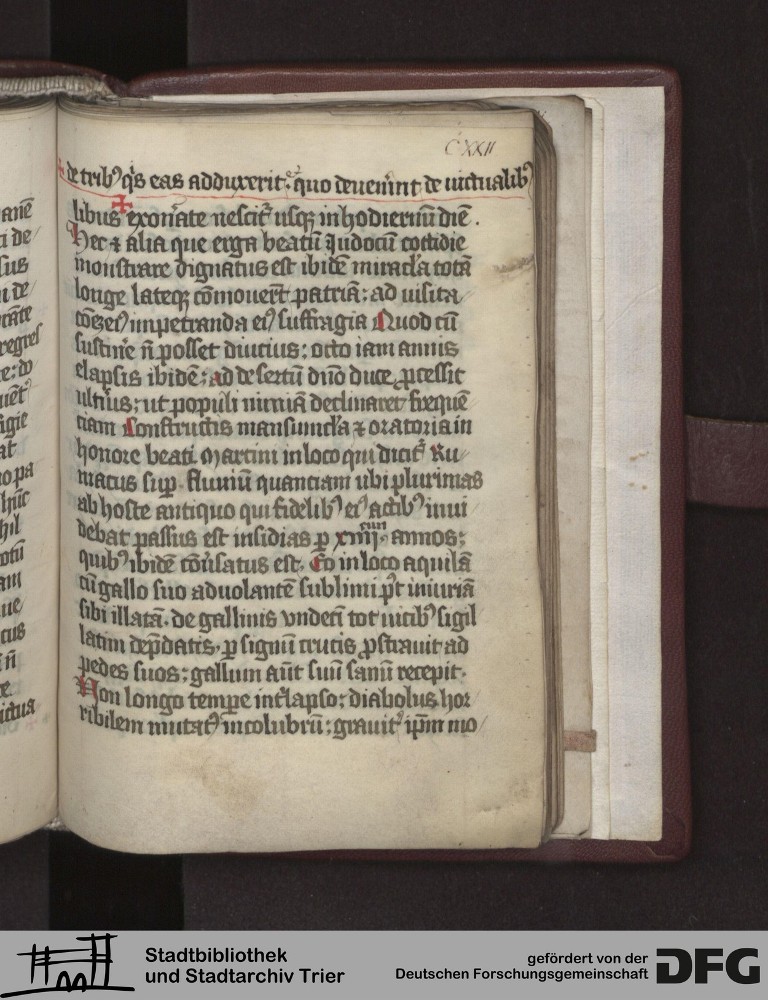 CXXII
de trib9 q̄s eas adduxerit: quo deuenīnt de uictualib9
libus exon̄ate nescit usq; in hodiernū diē.
Hec ⁊ alia que erga beatū Judocū cottidie
monstrare dignatus est ibidē miracl̄a totā
longe lateq; cōmouert̄ patriā: ad uisita
impetranda ei9 suffragia Quod cū
sustin̄e n̄ posset diutius: octo iam annis
elapsis ibidē: ad desertū dn̄o duce ꝓcessit
ult̄ius: ut populi nimiā declinaret frequē
tiam Constructis mansiuncl̄a ⁊ oratoria in
honore beati Martini in loco qui dicit̄ Ru
niacus sup. fluuiū quantiam ubi plurimas
ab hoste antiquo qui fidelib9 ei9 actib9 inui
debat passus est insidias ꝑ xiiii. annos:
quib9 ibidē cōu̅satus est. Eo in loco aquilā
cū gallo suo aduolantē sublimi p̄t iniuriā
sibi illatā. de gallinis vndeci̅ tot uicib9 sigil
latim dep̄datis. ꝑ signū crucis ꝓstrauit ad
pedes suos: gallum aūt suū sanū recepit.
Non longo tempe intl̄apso: diabolus hor
ribilem mutat9 in colubrū: grauit̄ ip̄m mo
anē
de
sus
de
regres
igie
at
pa
hūc
hil
totū
am
ue
cus
n̄
ictua
Stadtbibliothek
und Stadtarchiv Trier
gefördert von der
Deutschen Forschungsgemeinschaft
DFG